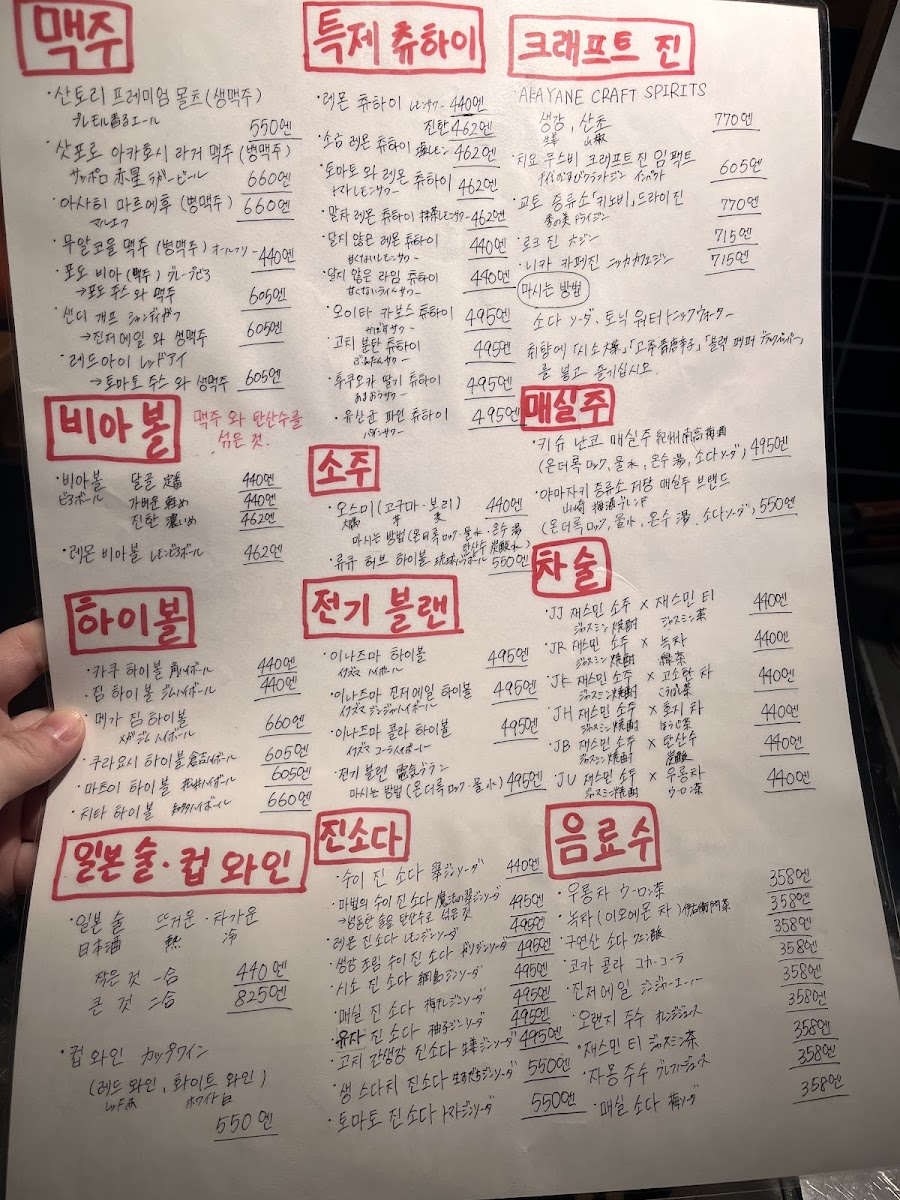 맥주
·산토리 프레미엄 몰츠(생맥주)
プレモル香るエール 550엔
·삿포로 아카호시 라거 맥주(병맥주)
サッポロ 赤星 ラガービール 660엔
·아사히 마르에후 (병맥주) 660엔
マルエフ
·무알코올 맥주 (병맥주) オールフリー 440엔
·포도 비아(맥주) グレープビア
→포도 주스와 맥주 605엔
·샌디 개프 シャンディガフ
→진저에일 와 생맥주 605엔
·레드아이 レッドアイ
→토마토 주스 와 생맥주 605엔
비아볼
맥주 와 탄산수를
섞은 것.
·비아볼 달골 定番 440엔
ビアボール 가벼운 軽め 440엔
진한 濃いめ 462엔
·레몬 비아볼 レモンビアボール 462엔
하이볼
·카쿠 하이볼 角ハイボール 440엔
·짐 하이볼 ジムハイボール 440엔
·메가 짐 하이볼 660엔
メガジムハイボール
·쿠라요시 하이볼 倉吉ハイボール 605엔
·마토이 하이볼 ハイボール 605엔
·치타 하이볼 知多ハイボール 660엔
일본 술·컵 와인
·일본 술 뜨거운·차가운
日本酒 熱 冷
작은 것 一合 440엔
큰 것 二合 825엔
·컵 와인 カップワイン
(레드 와인, 화이트 와인)
レッド赤 ホワイト白
550엔
특제 츄하이
·레몬 츄하이 レモンサワー 440엔
진한 462엔
·소금 레몬 츄하이 塩レモン 462엔
·토마토 와 레몬 츄하이 462엔
トマトレモンサワー
·말차 레몬 츄하이 抹茶レモンサワー 462엔
·달지 않은 레몬 츄하이 440엔
甘くないレモンサワー
·달지 않은 라임 츄하이 440엔
甘くないライムサワー
·오이타 카보스 츄하이 495엔
かぼすサワー
·고치 분탄 츄하이 495엔
ぶんたんサワー
·후쿠오카 딸기 츄하이 495엔
あまおうサワー
·유산균 파인 츄하이 495엔
パインサワー
소주
·오스미(고구마·보리) 440엔
大隅 芋 麦
마시는 방법(온더록 ロック·물 水·온수 湯
탄산수 炭酸水)
·류큐 허브 하이볼 琉球ハイボール 550엔
전기 블랜
·이나즈마 하이볼 495엔
イナズマ ハイボール
·이나즈마 진저에일 하이볼 495엔
イナズマ ジンジャハイボール
·이나즈마 콜라 하이볼 495엔
イナズマ コーラハイボール
·전기 블랜 電気ブラン
마시는 방법(온더록 ロック·물 水) 495엔
진소다
·수이 진 소다 翠ジンソーダ 440엔
·마법의 수이 진 소다 魔法の翠ジンソーダ 495엔
→냉동한 술을 탄산수로 섞은 것 495엔
·레몬 진소다 レモンジンソーダ 495엔
·생강 초림 수이 진 소다 ガリジンソーダ 495엔
·시소 진 소다 ジンソーダ 495엔
·매실 진 소다 梅干しジンソーダ 495엔
·유자 진 소다 柚子ジンソーダ 495엔
·고치 간생강 진소다 生姜ジンソーダ 495엔
·생 스다치 진소다 生すだちジンソーダ 550엔
·토마토 진 소다 トマトジンソーダ 550엔
크래프트 진
·AKAYANE CRAFT SPIRITS
생강, 산초 770엔
生姜 山椒
·치요 무스비 크래프트 진 임팩트 605엔
ちよむすびクラフトジン インパクト
·교토 증류소「키노비」드라이진 770엔
季の美 ドライジン
·로쿠 진 六ジン 715엔
·니카 카페진 ニッカカフェジン 715엔
마시는 방법
소다 ソーダ·토닉 워터 トニックウォーター
취향에「시소 大葉」「고추 青唐辛子」「블랙 페퍼 ブラックペッパー」
를 넣고 즐기십시오.
매실주
·키슈 난코 매실주 紀州南高梅酒
(온더록 ロック, 물 水, 온수 湯, 소다 ソーダ) 495엔
·야마자키 증류소 저장 매실주 브랜드
山崎 梅酒ブレンド
(온더록 ロック, 물 水, 온수 湯, 소다 ソーダ) 550엔
차술
·JJ 재스민 소주 × 재스민 티 440엔
ジャスミン焼酎 ジャスミン茶
·JR 재스민 소주 × 녹차 440엔
ジャスミン焼酎 緑茶
·JK 재스민 소주 × 고소한 차 440엔
ジャスミン焼酎 こうばし茶
·JH 재스민 소주 × 호지 차 440엔
ジャスミン焼酎 ほうじ茶
·JB 재스민 소주 × 탄산수 440엔
ジャスミン焼酎 炭酸
·JU 재스민 소주 × 우롱차 440엔
ジャスミン焼酎 ウーロン茶
음료수
·우롱차 ウーロン茶 358엔
·녹차(이요에몬 차) 伊右衛門茶 358엔
·구연산 소다 クエン酸 358엔
·코카 콜라 コカ·コーラ 358엔
·진저에일 ジンジャーエール 358엔
·오랜지 주수 オレンジジュース 358엔
·재스민 티 ジャスミン茶 358엔
·자몽 주수 グレフルジュース 358엔
·매실 소다 梅ソーダ 358엔